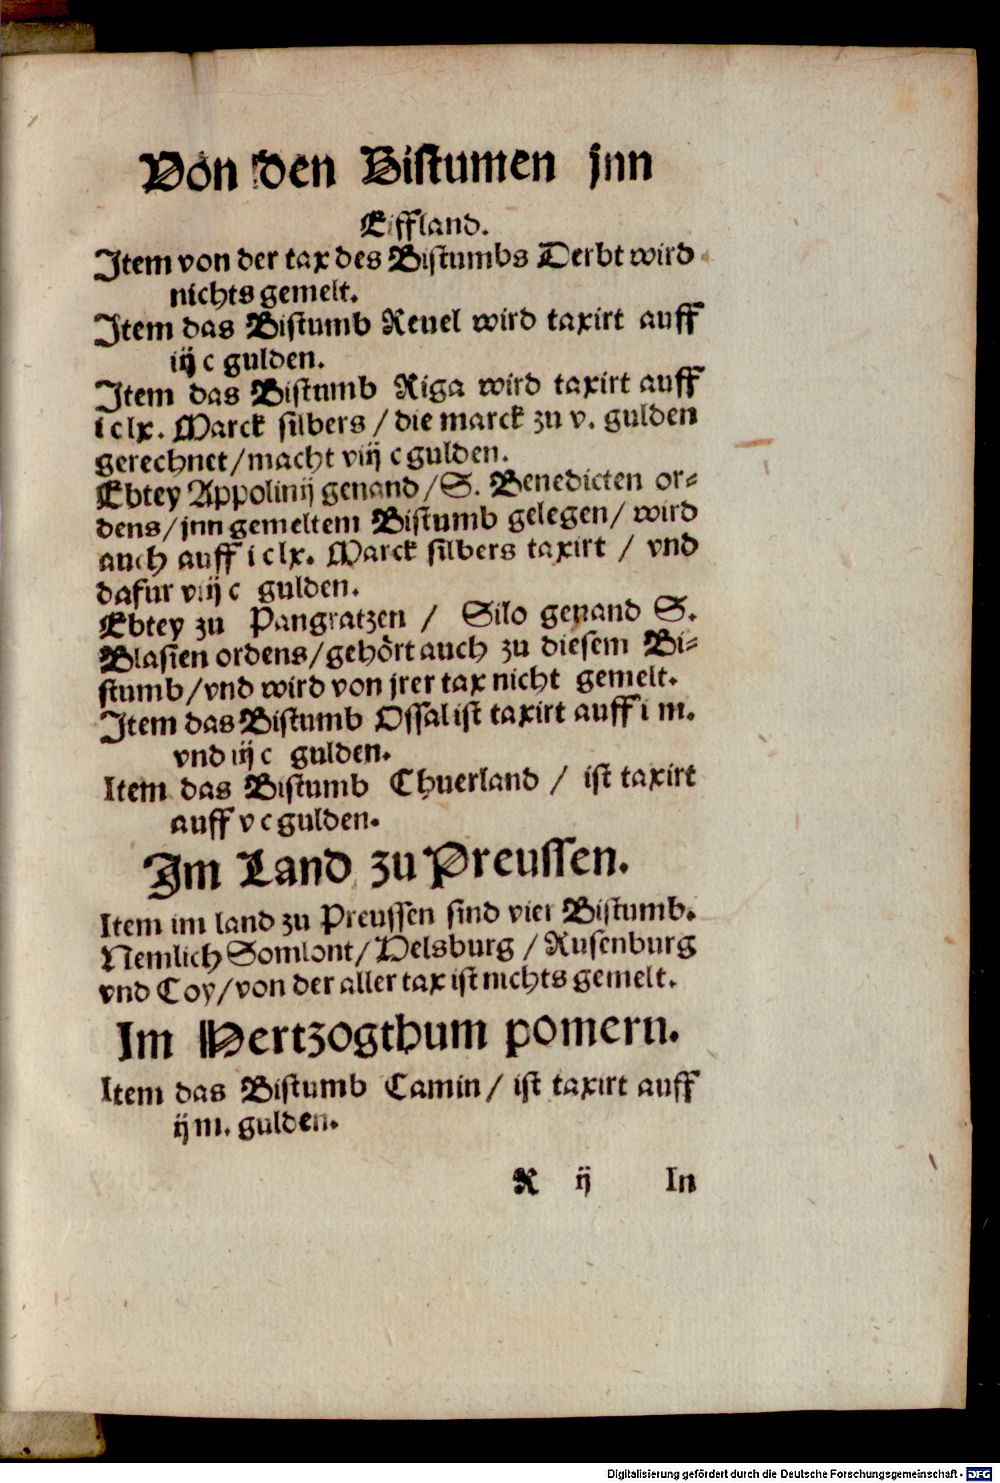 Von den Bistumen jnn
Eiffland.
Item von der tax des Bistumbs Derbt wird
nichts gemelt.
Item das Bistumb Reuel wird taxirt auff
iij c gulden.
Item das Bistumb Riga wird taxirt auff
i c lx. Marck silbers / die marck zu v. gulden
gerechnet / macht viij c gulden.
Ebtey Appolinij genand / S. Benedicten or⸗
dens / jnn gemeltem Bistumb gelegen / wird
auch auff i c lx. Marck silbers taxirt / vnd
dafur viij c gulden.
Ebtey zu Pangratzen / Silo genand S.
Blasien ordens / gehört auch zu diesem Bi⸗
stumb / vnd wird von jrer tax nicht gemelt.
Item das Bistumb Ossal ist taxirt auff i m.
vnd iij c gulden.
Item das Bistumb Chuerland / ist taxirt
auff v c gulden.
Im Land zu Preussen.
Item im land zu Preussen sind vier Bistumb.
Nemlich Somlont / Velsburg / Rusenburg
vnd Coy / von der aller tax ist nichts gemelt.
Im Hertzogthum pomern.
Item das Bistumb Camin / ist taxirt auff
ij m. gulden.
R ij In
Digitalisierung gefördert durch die Deutsche Forschungsgemeinschaft - DFG